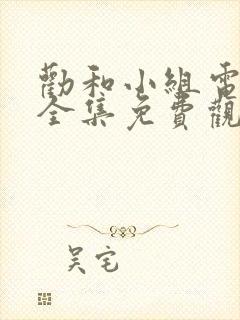 勸和小組電
全集免費觀
吴宅